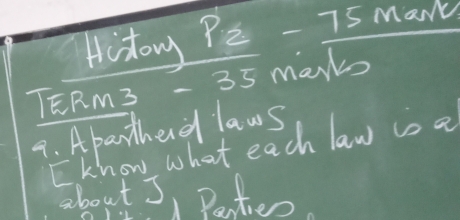 History P2 - 75 Marks
TERM 3 - 35 marks
a. Apartheid laws
[know what each law is
about]
Parties